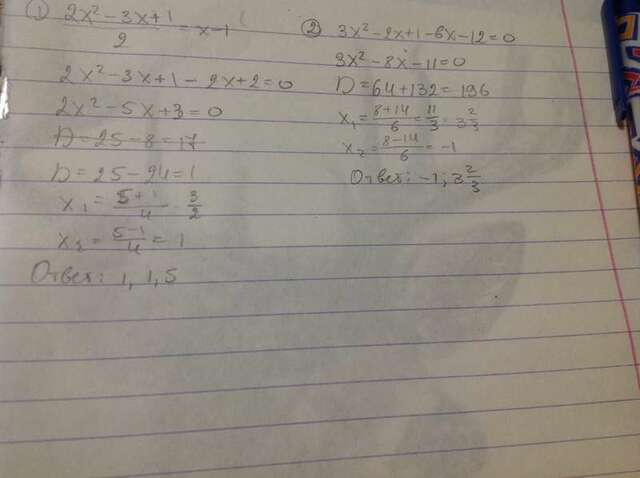 ① (2x² - 3x + 1)/2 = x - 1
2x² - 3x + 1 - 2x + 2 = 0
2x² - 5x + 3 = 0
D = 25 - 8 = 17
D = 25 - 24 = 1
x₁ = (5+1)/4 = 3/2
x₂ = (5-1)/4 = 1
Ответ: 1, 1,5
② 3x² - 2x + 1 - 6x - 12 = 0
3x² - 8x - 11 = 0
D = 64 + 132 = 196
x₁ = (8+14)/6 = 11/3 = 3 2/3
x₂ = (8-14)/6 = -1
Ответ: -1; 3 2/3